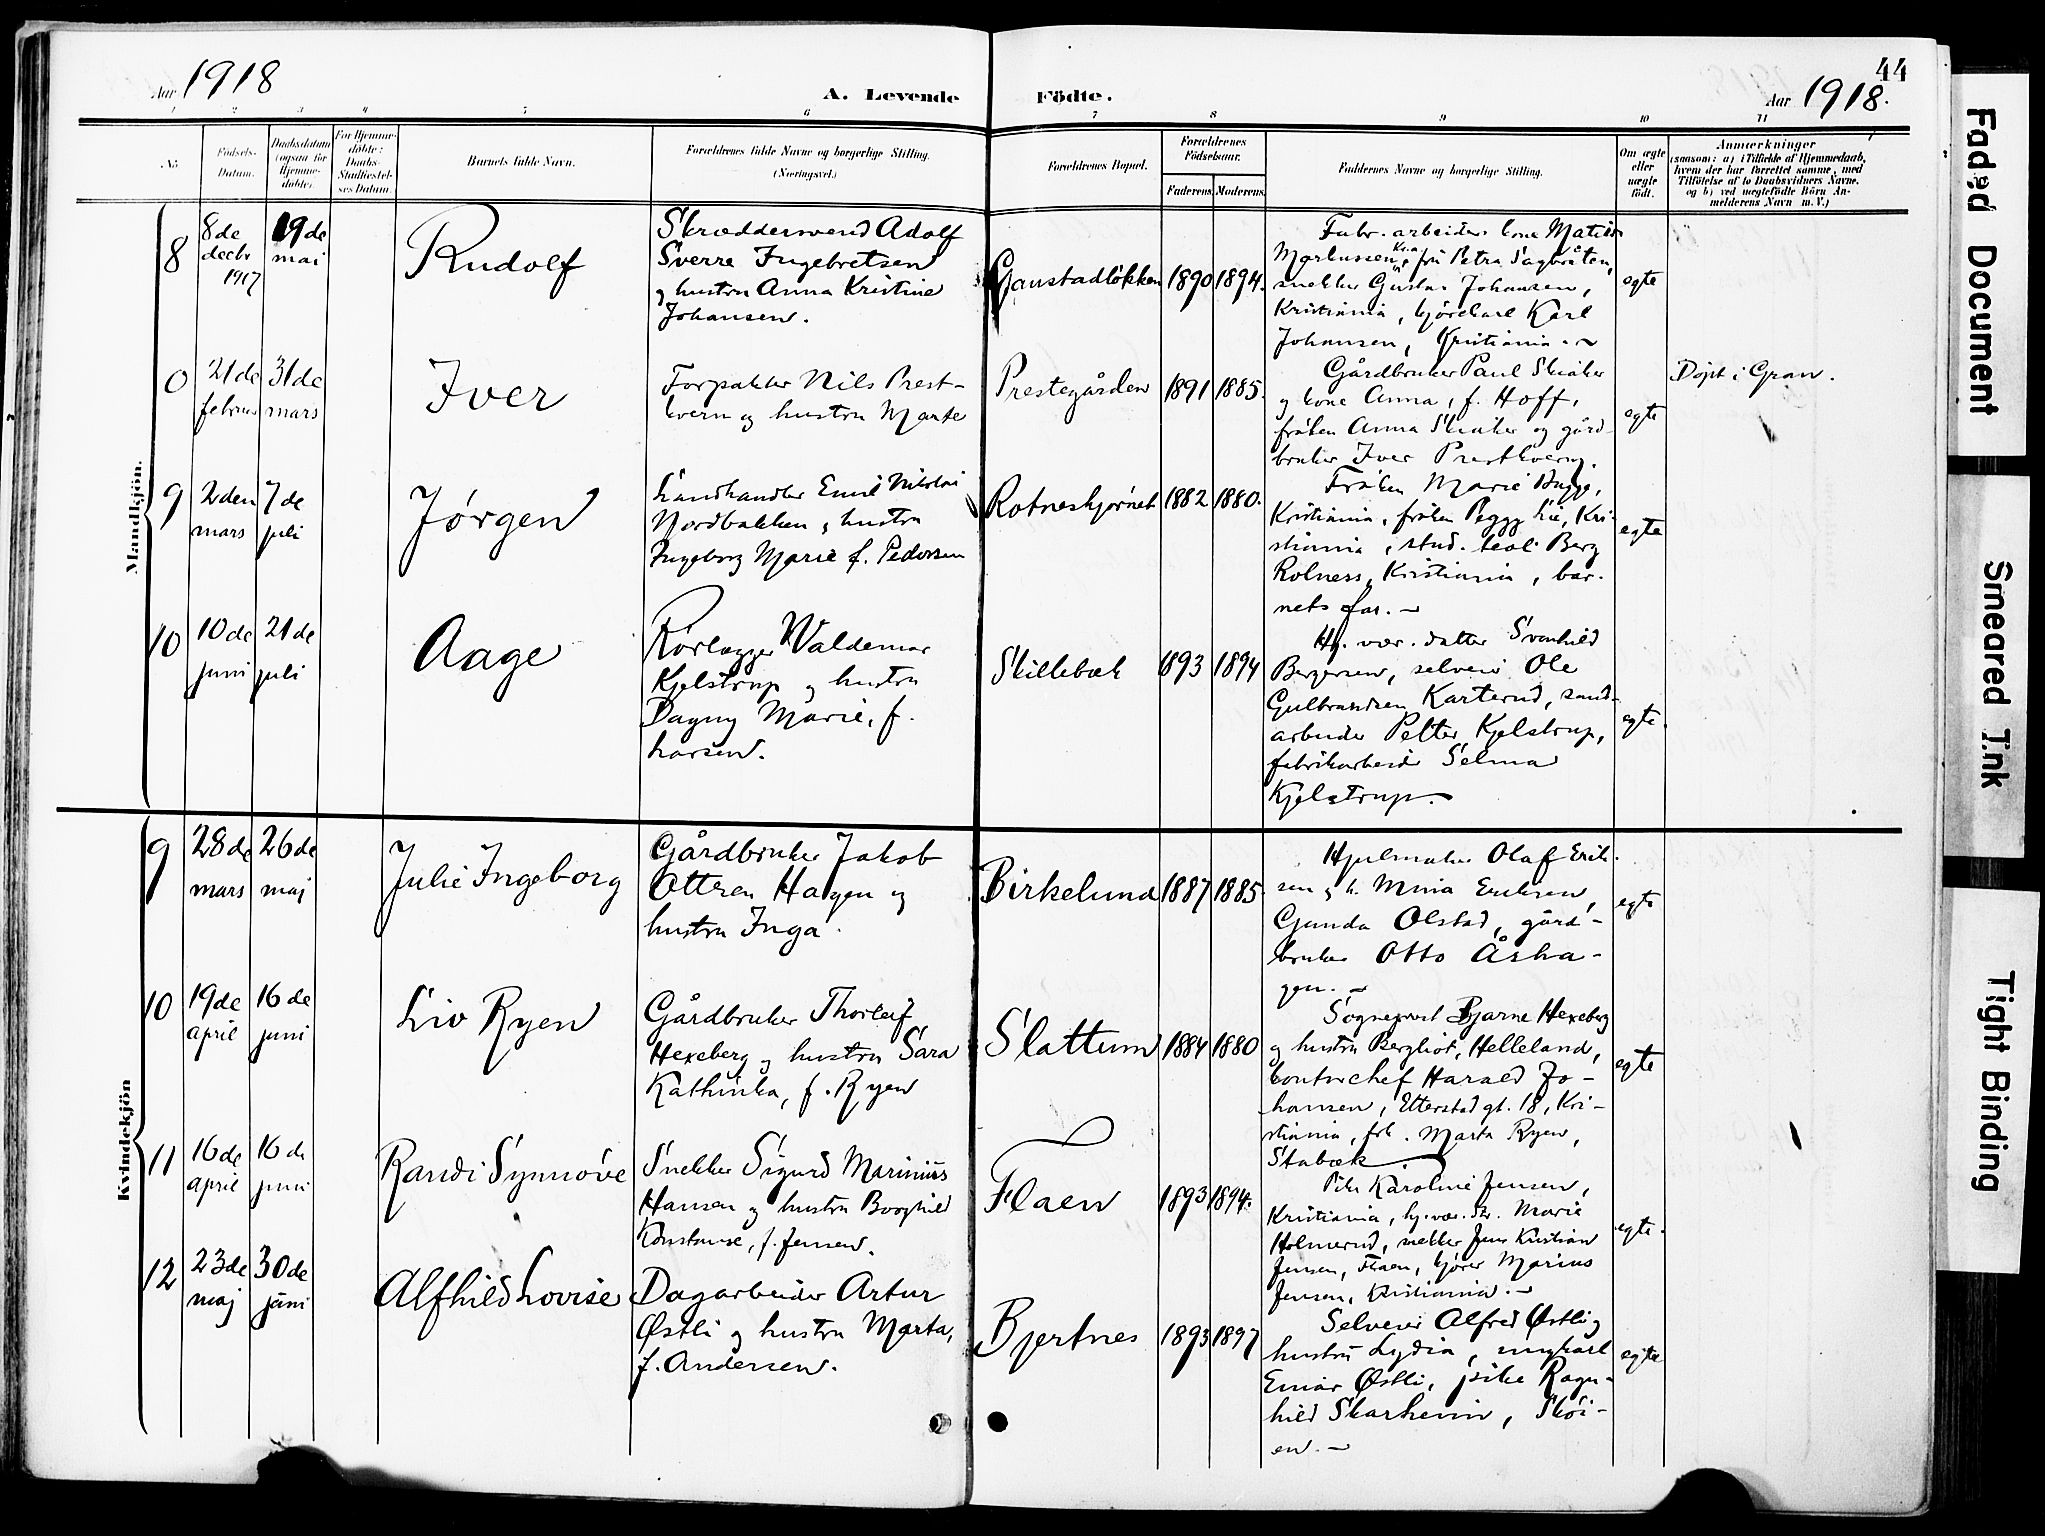 Aar 1918
A. Levende Födte.
Aar 1918.
44
1 2 3 4 5 6 7 8 9 10 11
No
Födsels-Datum.
Daabsdatum (ogsaa for Hjemme-döbte).
For Hjemme-döbte: Daabs-Stadfæstel-ses Datum.
Barnets fulde Navn.
Forældrenes fulde Navne og borgerlige Stilling. (Næringsvei.)
Forældrenes Bopæl.
Forældrenes Födselsaar.
Faderens. Moderens.
Faddernes Navne og borgerlige Stilling.
Om ægte eller uægte födt.
Anmærkninger
(saasom: a) i Tilfælde af Hjemmedaab,
hvem der har forrettet samme, med
Tilföielse af to Daabsvidners Navne,
og b) ved uægtefödte Börn An-
melderens Navn m. V.)
Mandkjön.
8
8de
decbr
1917
19de
mai
Rudolf
Skræddersvend Adolf
Sverre Ingebretsen
og hustru Anna Kristine
Johansen.
Gaustadløkken
1890
1894.
Fabr. arbeiders kone
Markussen, Kr.a, fru Petra Sagbråten,
snekker Gustav Johansen,
Kristiania, kjørekarl Karl
Johansen, Kristiania. -
egte
0
21de
februar
31de
mars
Iver
Forpakter Nils Prest-
kvern og hustru Marte
Prestegården
1891
1885.
Gårdbruker Paul Skiaker
og kone Anna, f. Hoff,
frøken Anna Skiaker og gård-
bruker Iver Prestkvern.
egte
Døpt i Gran.
9
2den
mars
7de
juli
Jørgen
Landhandler Emil Nikolai
Nordbakken og hustru
Ingeborg Marie f. Pedersen
Rotneshjørnet
1882
1880.
Frøken Marie Bugge,
Kristiania, frøken Peggy Lie, Kri-
stiania, stud. teol. Berg
Rolness, Kristiania, bar-
nets far. -
egte
10
10de
juni
21de
juli
Aage
Rørlægger Waldemar
Kjelstrup og hustru
Dagny Marie, f.
Larsen.
Skillebæk
1893
1894
Hj. vær. datter Svanhild
Bergersen, selveier Ole
Gulbrandsen Karterud, sand-
arbeider Petter Kjelstrup,
fabrikarbeider Selma
Kjelstrup. -
egte.
Kvindekjön
9
28de
mars
26de
maj
Julie Ingeborg
Gårdbruker Jakob
Ottren Hagen og
hustru Inga.
Birkelund
1887
1885.
Hjulmaker Olaf Erik-
sen og h. Mina Eriksen,
Gunda Olstad, gård-
bruker Otto Åsha-
gen. -
egte
10
19de
april
16de
juni
Liv Ryen
Gårdbruker Thorleif
Hexeberg og hustru Sara
Kathinka, f. Ryen
Slattum
1884
1880
Sogneprest Bjarne Hexeberg
og hustru Bergliot, Helleland,
kontorchef Harald Jo-
hansen, Etterstad gt. 18, Kri-
stiania, frk. Marta Ryen,
Stabæk.
egte
11
16de
april
16de
juni
Randi Synnøve
Snekker Sigurd Marinius
Hansen og hustru Borghild
Konstanse, f. Jensen.
Flaen
1893
1894.
Pike Karoline Jensen,
Kristiania, hj. vær. dtr. Marie
Holmerud, snekker Jens Kristian
Jensen, Flaen, kjører Marius
Jensen, Kristiania. -
egte.
12
23de
maj
30de
juni
Alfhild Lovise
Dagarbeider Artur
Østli og hustru Marta,
f. Andersen.
Bjertnes
1893
1897
Selveier Alfred Østli og
hustru Lydia, ungkarl
Einar Østli, pike Ragn-
hild Skarheim, Skøi-
en. -
egte
Faded Document
Smeared Ink
Tight Binding